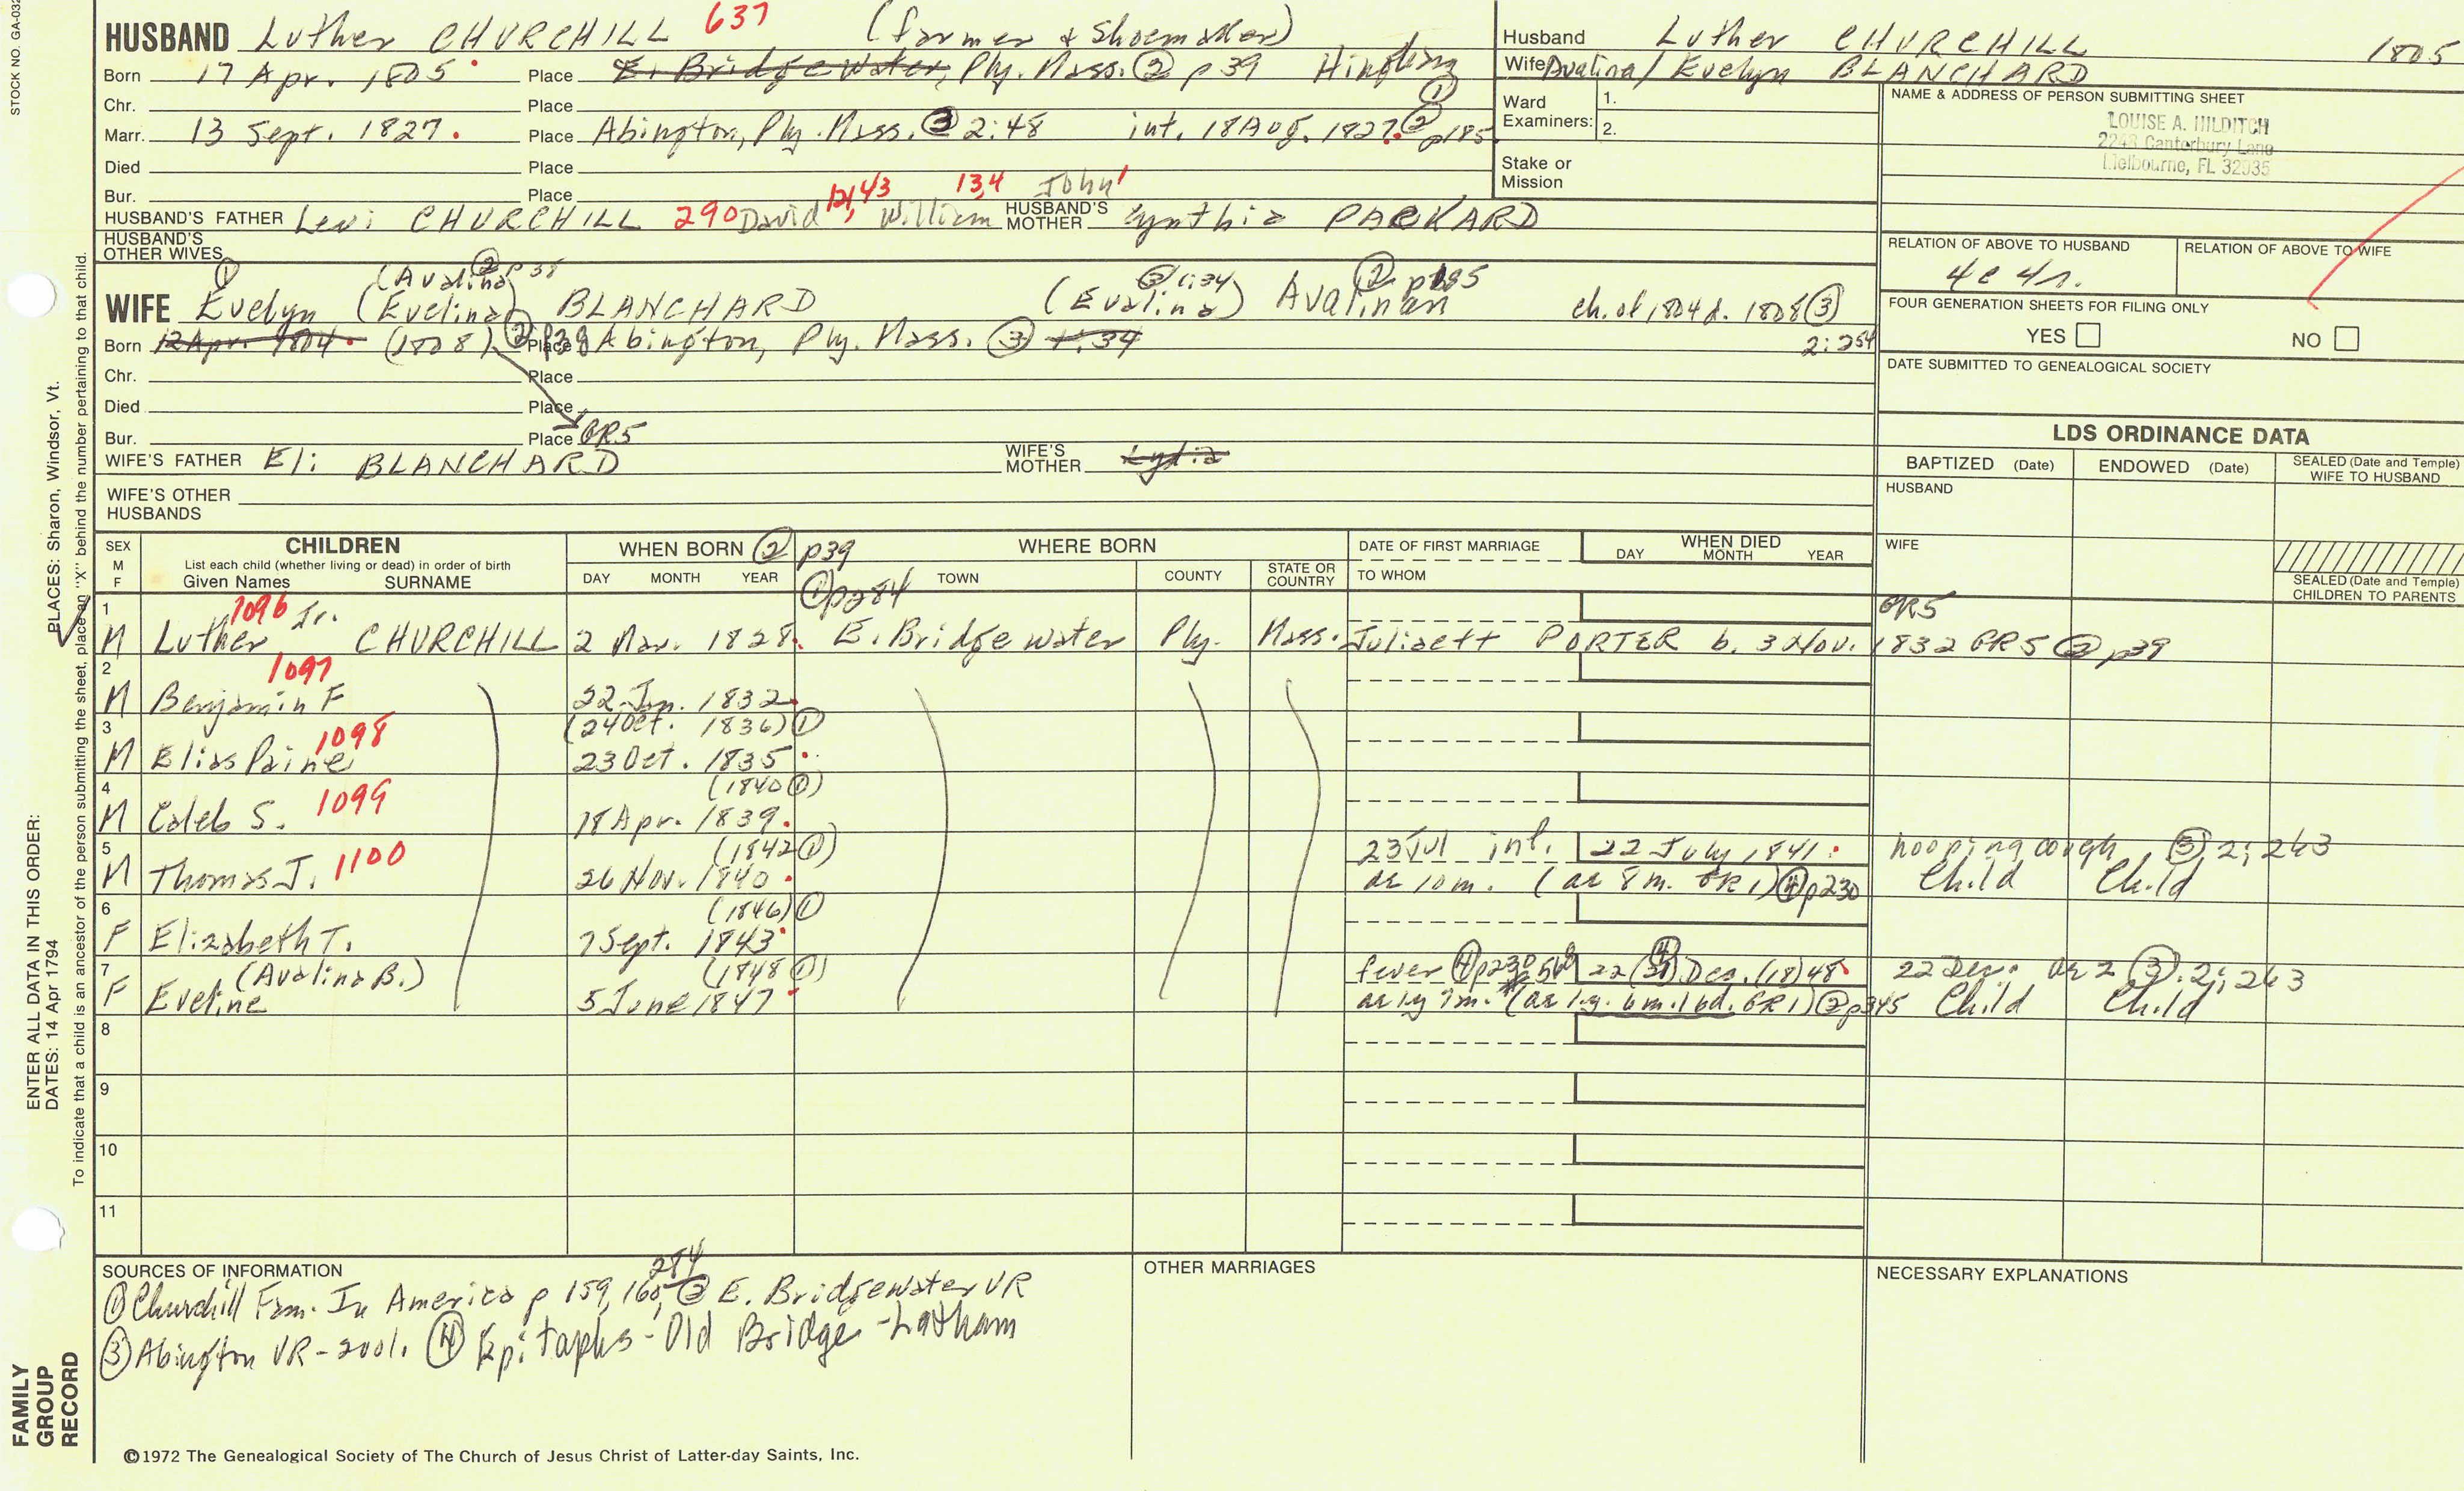 STOCK NO. GA-032
HUSBAND Luther CHURCHILL 637 (farmer & Shoemaker)
Born 17 Apr. 1805 Place E. Bridgewater, Ply. Mass. ② p 39 Hingham ①
Chr. Place
Marr. 13 Sept. 1827. Place Abington, Ply. Mass. ③ 2:48 int. 18 Aug. 1827. ② p185
Died Place
Bur. Place
HUSBAND'S FATHER Levi CHURCHILL 290 David 121,43 William 13,4 John 1 HUSBAND'S MOTHER Cynthia PACKARD
HUSBAND'S OTHER WIVES
① (Avalina ② p 38 ③ 1:34 ② p185
WIFE Evelyn (Evelina) BLANCHARD (Evalina) Avalinan ch. of 1804 d. 1808 ③
Born 12 Apr. 1804. (1808) ② p39 Place Abington, Ply. Mass. ③ 1:34 2:254
Chr. Place
Died Place
Bur. Place GR5
WIFE'S FATHER Eli BLANCHARD WIFE'S MOTHER Lydia
WIFE'S OTHER HUSBANDS
Husband Luther CHURCHILL 1805
Wife Avalina/Evelyn BLANCHARD
Ward Examiners: 1.
2.
Stake or Mission
NAME & ADDRESS OF PERSON SUBMITTING SHEET
LOUISE A. HILDITCH
2248 Canterbury Lane
Melbourne, FL 32935
RELATION OF ABOVE TO HUSBAND RELATION OF ABOVE TO WIFE
4c 4r.
FOUR GENERATION SHEETS FOR FILING ONLY
YES NO
DATE SUBMITTED TO GENEALOGICAL SOCIETY
LDS ORDINANCE DATA
BAPTIZED (Date) ENDOWED (Date) SEALED (Date and Temple) WIFE TO HUSBAND
HUSBAND
WIFE
SEALED (Date and Temple) CHILDREN TO PARENTS
SEX M F CHILDREN
List each child (whether living or dead) in order of birth
Given Names SURNAME
WHEN BORN ② p39
DAY MONTH YEAR
WHERE BORN
① p284 TOWN COUNTY STATE OR COUNTRY
DATE OF FIRST MARRIAGE
TO WHOM
WHEN DIED
DAY MONTH YEAR
1 1096 Jr. GR5
M Luther CHURCHILL 2 Mar. 1828. E. Bridgewater Ply. Mass. Juliaett PORTER b. 3 Nov. 1832 GR5 ② p39
2 1097
M Benjamin F 22 Jan. 1832.
3 1098 (24 Oct. 1836) ①
M Elias Paine 23 Oct. 1835.
4 1099 (1840 ①)
M Caleb S. 18 Apr. 1839.
5 1100 (1842 ①) 23 Jul int. 22 July 1841. hooping cough ③ 2:263
M Thomas J. 26 Nov. 1840. ae 10m. (ae 8m. GR1) ④ p230 Child Child
6 (1846) ①
F Elizabeth T. 7 Sept. 1843.
7 (Avalina B.) (1848 ①) fever ④ p230 22 Dec. (18)48. 22 Dec. ae 2 ③ 2:263
F Eveline 5 June 1847. ae 1y 7m. (ae 1y. 6m. 16d. GR1) ② p345 Child Child
8
9
10
11
SOURCES OF INFORMATION
① Churchill Fam. In America p 159, 160, 284 ② E. Bridgewater VR
③ Abington VR - 2vol. ④ Epitaphs - Old Bridge - Latham
OTHER MARRIAGES
NECESSARY EXPLANATIONS
©1972 The Genealogical Society of The Church of Jesus Christ of Latter-day Saints, Inc.
FAMILY GROUP RECORD
ENTER ALL DATA IN THIS ORDER:
DATES: 14 Apr 1794
PLACES: Sharon, Windsor, Vt.
To indicate that a child is an ancestor of the person submitting the sheet, place an "X" behind the number pertaining to that child.